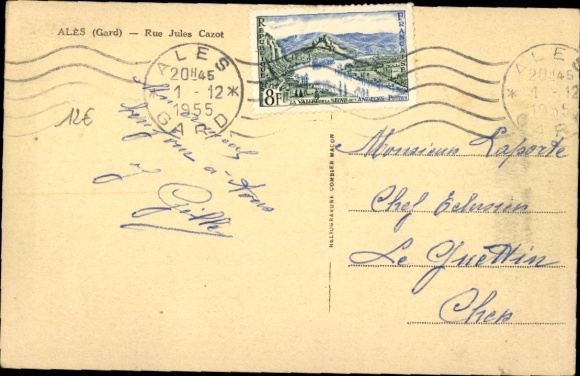 ALÈS (Gard) — Rue Jules Cazot
ALES
20H45
1 - 12 *
1955
GARD
REPUBLIQUE FRANCAISE
8F
LA VALLEE DE LA SEINE AUX ANDELYS POSTES
ALES
20H45
1 - 12 *
1955
GARD
12€
à tous
Gilly
HELIOGRAVURE COMBIER MACON
Monsieur Laporte
Chef Eclusier
Le Guettin
Cher